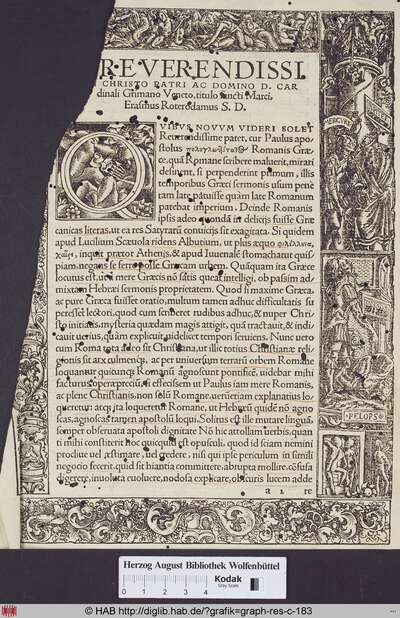 REVERENDISSI
CHRISTO PATRI AC DOMINO D. CAR
dinali Grimano Veneto, titulo sancti Marci,
Erasmus Roterodamus S. D.
QVIBVS NOVVM VIDERI SOLET
Reuerendissime pater, cur Paulus apo-
stolus Romanis Græ-
ce, quā Romane scribere maluerit, mirari
desinent, si perpenderint primum, illis
temporibus Græci sermonis usum pene
tam late patuisse quàm late Romanum
patebat imperium. Deinde Romanis
ipsis adeo quondā in delicijs fuisse Græ
canicas literas, ut ea res Satyrarū conuicijs sit exagitata. Si quidem
apud Lucilium Scæuola ridens Albutium, ut plus æquo φιλέλληνα,
χαῖρε, inquit prætor Athenis, & apud Iuuenale stomachatur quis/
piam, negans se ferre posse Græcam urbem. Quāquam ita Græce
locutus est, ut ea mere Græcis nō satis queāt intelligi, ob passim ad
mixtam Hebræi sermonis proprietatem. Quod si maxime Græca,
ac pure Græca fuisset oratio, multum tamen adhuc difficultatis su
peresset lectori, quod cum scriberet rudibus adhuc, & nuper Chri/
sto initiatis, mysteria quædam magis attigit, quā tractauit, & indi/
cauit uerius, quàm explicuit, uidelicet tempori seruiens. Nunc uero
cum Roma tota adeo sit Christiana, ut illic totius Christianæ reli/
gionis sit arx culmenq;, ac per uniuersum terrarū orbem Romane
loquantur quicunq; Romanū agnoscunt pontificē, uidebar mihi
facturus operæprecium, si effecissem ut Paulus iam mere Romanis,
ac plene Christianis, non solū Romane, uerūetiam explanatius lo
queretur: atq; ita loqueretur Romane, ut Hebræū quidē nō agno
scas, agnoscas tamen apostolū loqui. Solitus est ille mutare linguā,
semper obseruata apostoli dignitate Nō hic attollam uerbis, quan
ti mihi constiterit hoc quicquid est opusculi, quod id sciam nemini
procliue uel æstimare, uel credere, nisi qui ipse periculum in simili
negocio fecerit, quid sit hiantia committere, abrupta mollire, cōfusa
digerere, inuoluta euoluere, nodosa explicare, obscuris lucem adde
a 2 re
MERCVRI
PELOPS
Herzog August Bibliothek Wolfenbüttel
0 1 2 3 4
Kodak
Gray Scale
© HAB http://diglib.hab.de/?grafik=graph-res-c-183